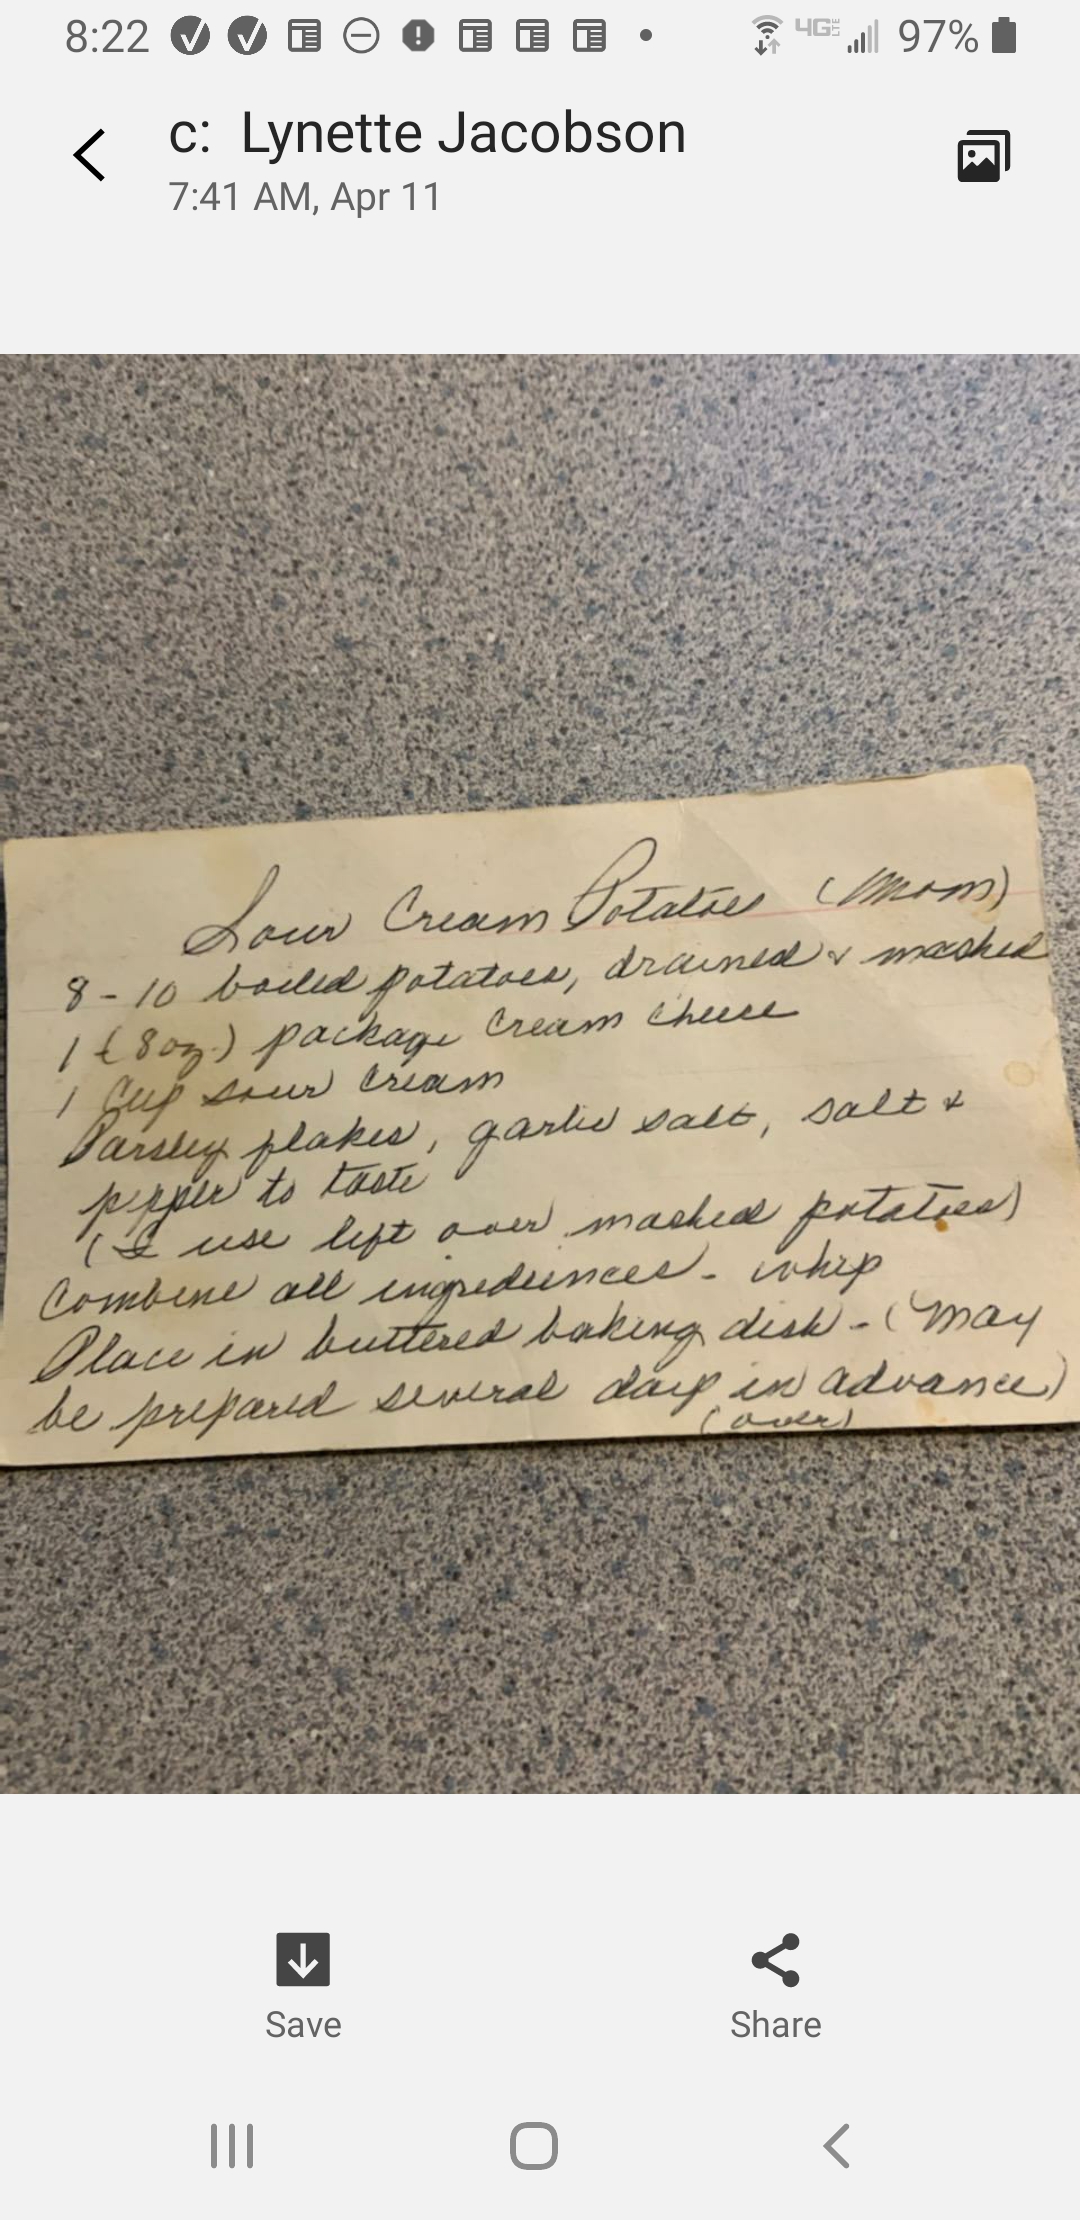 8:22 4GE 97%
c: Lynette Jacobson
7:41 AM, Apr 11
Sour Cream Potatoes (Mom)
8-10 boiled potatoes, drained & mashed
1 (8 oz.) package Cream Cheese
1 Cup sour cream
Parsley flakes, garlic salt, salt &
pepper to taste
(I use left over mashed potatoes)
Combine all ingrediences - whip
Place in buttered baking dish - (May
be prepared several days in advance)
(over)
Save Share